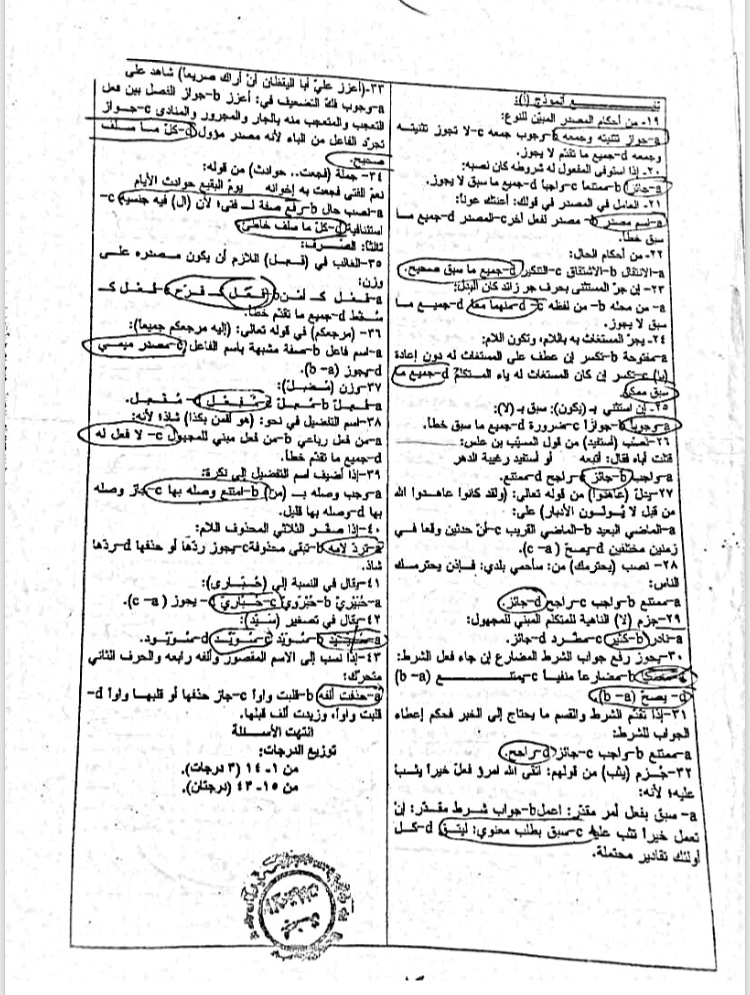 تابـــــع أنموذج (أ):
١٩-من أحكام المصدر المبيّن للنوع:
a-جواز تثنيته وجمعه b-وجوب جمعه c-لا تجوز تثنيته
وجمعه d-جميع ما تقدّم لا يجوز.
٢٠-إذا استوفى المفعول له شروطه كان نصبه:
a-جائزاً b-ممتنعا c-واجبا d-جميع ما سبق لا يجوز.
٢١-العامل في المصدر في قولك: أعنتك عونا:
a-اسم مصدر b-مصدر لفعل آخر c-المصدر d-جميع مـــا
سبق خطأ.
٢٢-من أحكام الحال:
a-الانتقال b-الاشتقاق c-التنكير d-جميع ما سبق صحيح.
٢٣-إن جرّ المستثنى بحرف جر زائد كان البدل:
a-من محله b-من لفظه c-منهما معا d-جميـــع مـــا
سبق لا يجوز.
٢٤-يجرّ المستغاث به باللام، وتكون اللام:
a-مفتوحة b-تكسر إن عطف على المستغاث له دون إعادة
(يا) c-تكسر إن كان المستغاث له ياء المـــتكلّم d-جميع ما
سبق ممكن.
٢٥-إن استثني بـ (يكون): سبق بـ (لا):
a-وجوبا b-جوازا c-ضرورة d-جميع ما سبق خطأ.
٢٦-نصب (أستفيد) من قول المسيّب بن علس:
قتلت أباه فقال: أتبعه أو أستفيد رغيبة الدهر
a-واجب b-جائز c-راجح d-ممتنع.
٢٧-يدلّ (عاهدوا) من قوله تعالى: (ولقد كانوا عاهـدوا الله
من قبل لا يُولـــون الأدبار) على:
a-الماضي البعيد b-الماضي القريب c-أنّ حدثين وقعا في
زمنين مختلفين d-يصحّ (c -a).
٢٨- نصب (يحترمك) من: سأحمي بلدي: فـــإذن يحترمـــك
الناس:
a-ممتنع b-واجب c-راجح d-جائز.
٢٩-جزم (لا) الناهية للمتكلم المبني للمجهول:
a-نادر b-كثير c-مطّرد d-جائز.
٣٠-يجوز رفع جواب الشرط المضارع إن جاء فعل الشرط:
b-مضارعا منفيا c-يمتنـــــــع (b -a)
d- يصحّ (b -a).
٣١-إذا تقدّم الشرط والقسم ما يحتاج إلى الخبر فحكم إعطاء
الجواب للشرط:
a-ممتنع b-واجب c-جائز d-راجح.
٣٢-جـــزم (يثب) من قولهم: اتقى الله امرؤ فعلَ خيراً يثـــبْ
عليه؛ لأنه:
a- سبق بفعل أمر مقدّر: اعمل b-جواب شـــرط مقـــدّر: إنْ
تعمل خيـراً تثب عليه c-سبق بطلب معنوي: ليتقِ d-كـــل
أولئك تقادير محتملة.
٣٣-(أعزز عليّ أبا اليقظان أنْ أراك صريعا) شاهد على
a-وجوب فكّ التضعيف في: أعزز b-جواز الفصل بين فعل
التعجب والمتعجب منه بالجار والمجرور والمنادى c-جـــواز
تجرّد الفاعل من الباء لأنه مصدر مؤول d-كلّ مـــا ســـلف
صحيح.
٣٤- جملة (فجعت.. حوادث) من قوله:
نعمَ الفتى فجعت به إخوانه يومَ البقيع حوادث الأيام
a-نصب حال b-رفع صفة لـ فتى؛ لأن (ال) فيه جنسية c-
استئنافية d-كلّ ما سلف خاطئ.
ثالثاً: الصّـــرف:
٣٥-الغالب في (فـــعِـــل) اللازم أن يكون مـــصدره علـــى
وزن:
d-جميع ما تقدّم خطأ.
٣٦- (مرجعكم) في قوله تعالى: (إليه مرجعكم جميعا):
a-اسم فاعل b-صفة مشبهة باسم الفاعل c-مصدر ميمي
d-يجوز (b -a).
٣٨-اسم التفضيل في نحو: (هو ألصّ بكذا) شاذ؛ لأنه:
a-من فعل رباعي b-من فعل مبني للمجهول c- لا فعل له
d-جميع ما تقدّم خطأ.
٣٩-إذا أضيف اسم التفضيل إلى نكرة:
a-وجب وصله بـــ (من) b-امتنع وصله بها c-جاز وصله
بها d-وصله بها قليل.
٤٠-إذا صغّر الثلاثي المحذوف اللام:
a-تردّ لامه b-تبقى محذوفة c-يجوز ردّها أو حذفها d-ردّها
شاذ.
٤١-يقال في النسبة إلى (حُبَـــارى):
a-حُبَيْريّ b-حُبْرَويّ c-حُبَاريّ d- يجوز (c -a).
٤٢-يقال في تصغير (سيّد):
b-سُويّد c-سُوَيِّــد d-سُويْود.
٤٣-إذا نسب إلى الاسم المقصور وألفه رابعه والحرف الثاني
متحرك:
a-حذفت ألفه b-قلبت واواً c-جاز حذفها أو قلبهـــا واواً d-
قلبت واواً، وزيدت ألف قبلها.
انتهت الأســـئلة
توزيع الدرجات:
من ١-١٤ (٣ درجات).
من ١٥-٤٣ (درجتان).